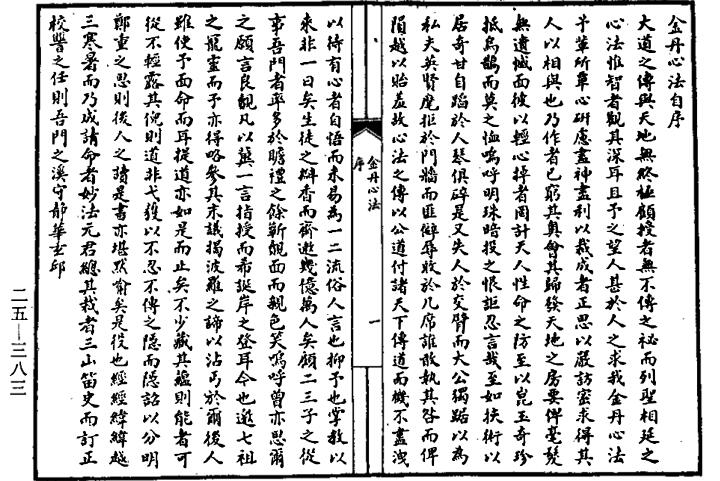 金丹心法自序
大道之傳與天地無終極顧授者無不傳之祕而列聖相延之
心法惟智者觀其深耳且予之望人甚於人之求我金丹心法
予輩所單心研慮盡神盡利以裁成者正思以嚴訪密求得其
人以相與也乃作者已窮其奧會其歸發天地之房要俾毫髮
無遺憾而彼以輕心掉者罔計天人性命之防至以崑玉奇珍
抵烏鵲而莫之恤嗚呼明珠暗投之恨詎忍言哉至如挾術以
居奇甘自蹈於人琴俱碎是又失人於交臂而大公獨踞以為
私夫英賢麾拒於門牆而匪僻辱收於几席誰敢執其咎而俾
隕越以貽羞故心法之傳以公道付諸天下傳道而機不盡洩
金丹心法
序
一
以待有心者自悟而未易為一二流俗人言也抑予也掌教以
來非一日矣生徒之辦香而齋邀幾億萬人矣顧二三子之從
事吾門者率多於瞻禮之餘斬覿面而親色笑嗚呼曾亦思爾
之願言良覿凡以冀一言指授而希誕岸之登耳今也邀七祖
之寵靈而予亦得略參其末議揭波羅之諦以沾丐於爾後人
雖使予面命而耳提道亦如是而止矣不少藏其蘊則能者可
從不輕露其倪則道非弋獲以不忍不傳之隱而隱詔以分明
鄭重之思則後人之讀是書亦堪默喻矣是役也經經緯緯越
三寒暑而乃成請命者妙法元君總其裁者三山笛史而訂正
校讐之任則吾門之溪守靜華玄邱
二五—三八三